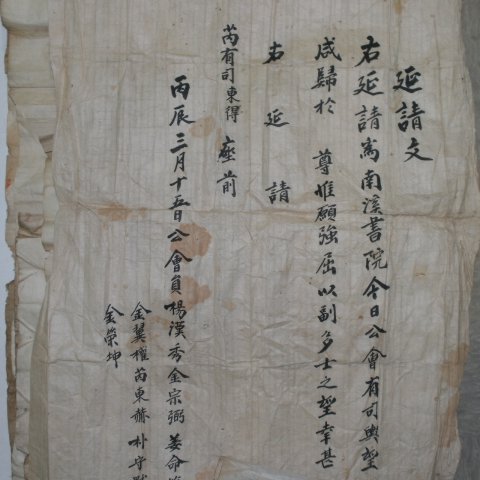 延請文
右延請爲南溪書院今日公會有司輿望
咸歸於 尊惟願強屈以副多士之望幸甚
右延請
芮有司東得 座前
丙辰三月十五日公會員楊漢秀金宗弼姜命
金翼權芮東赫朴守
金榮坤